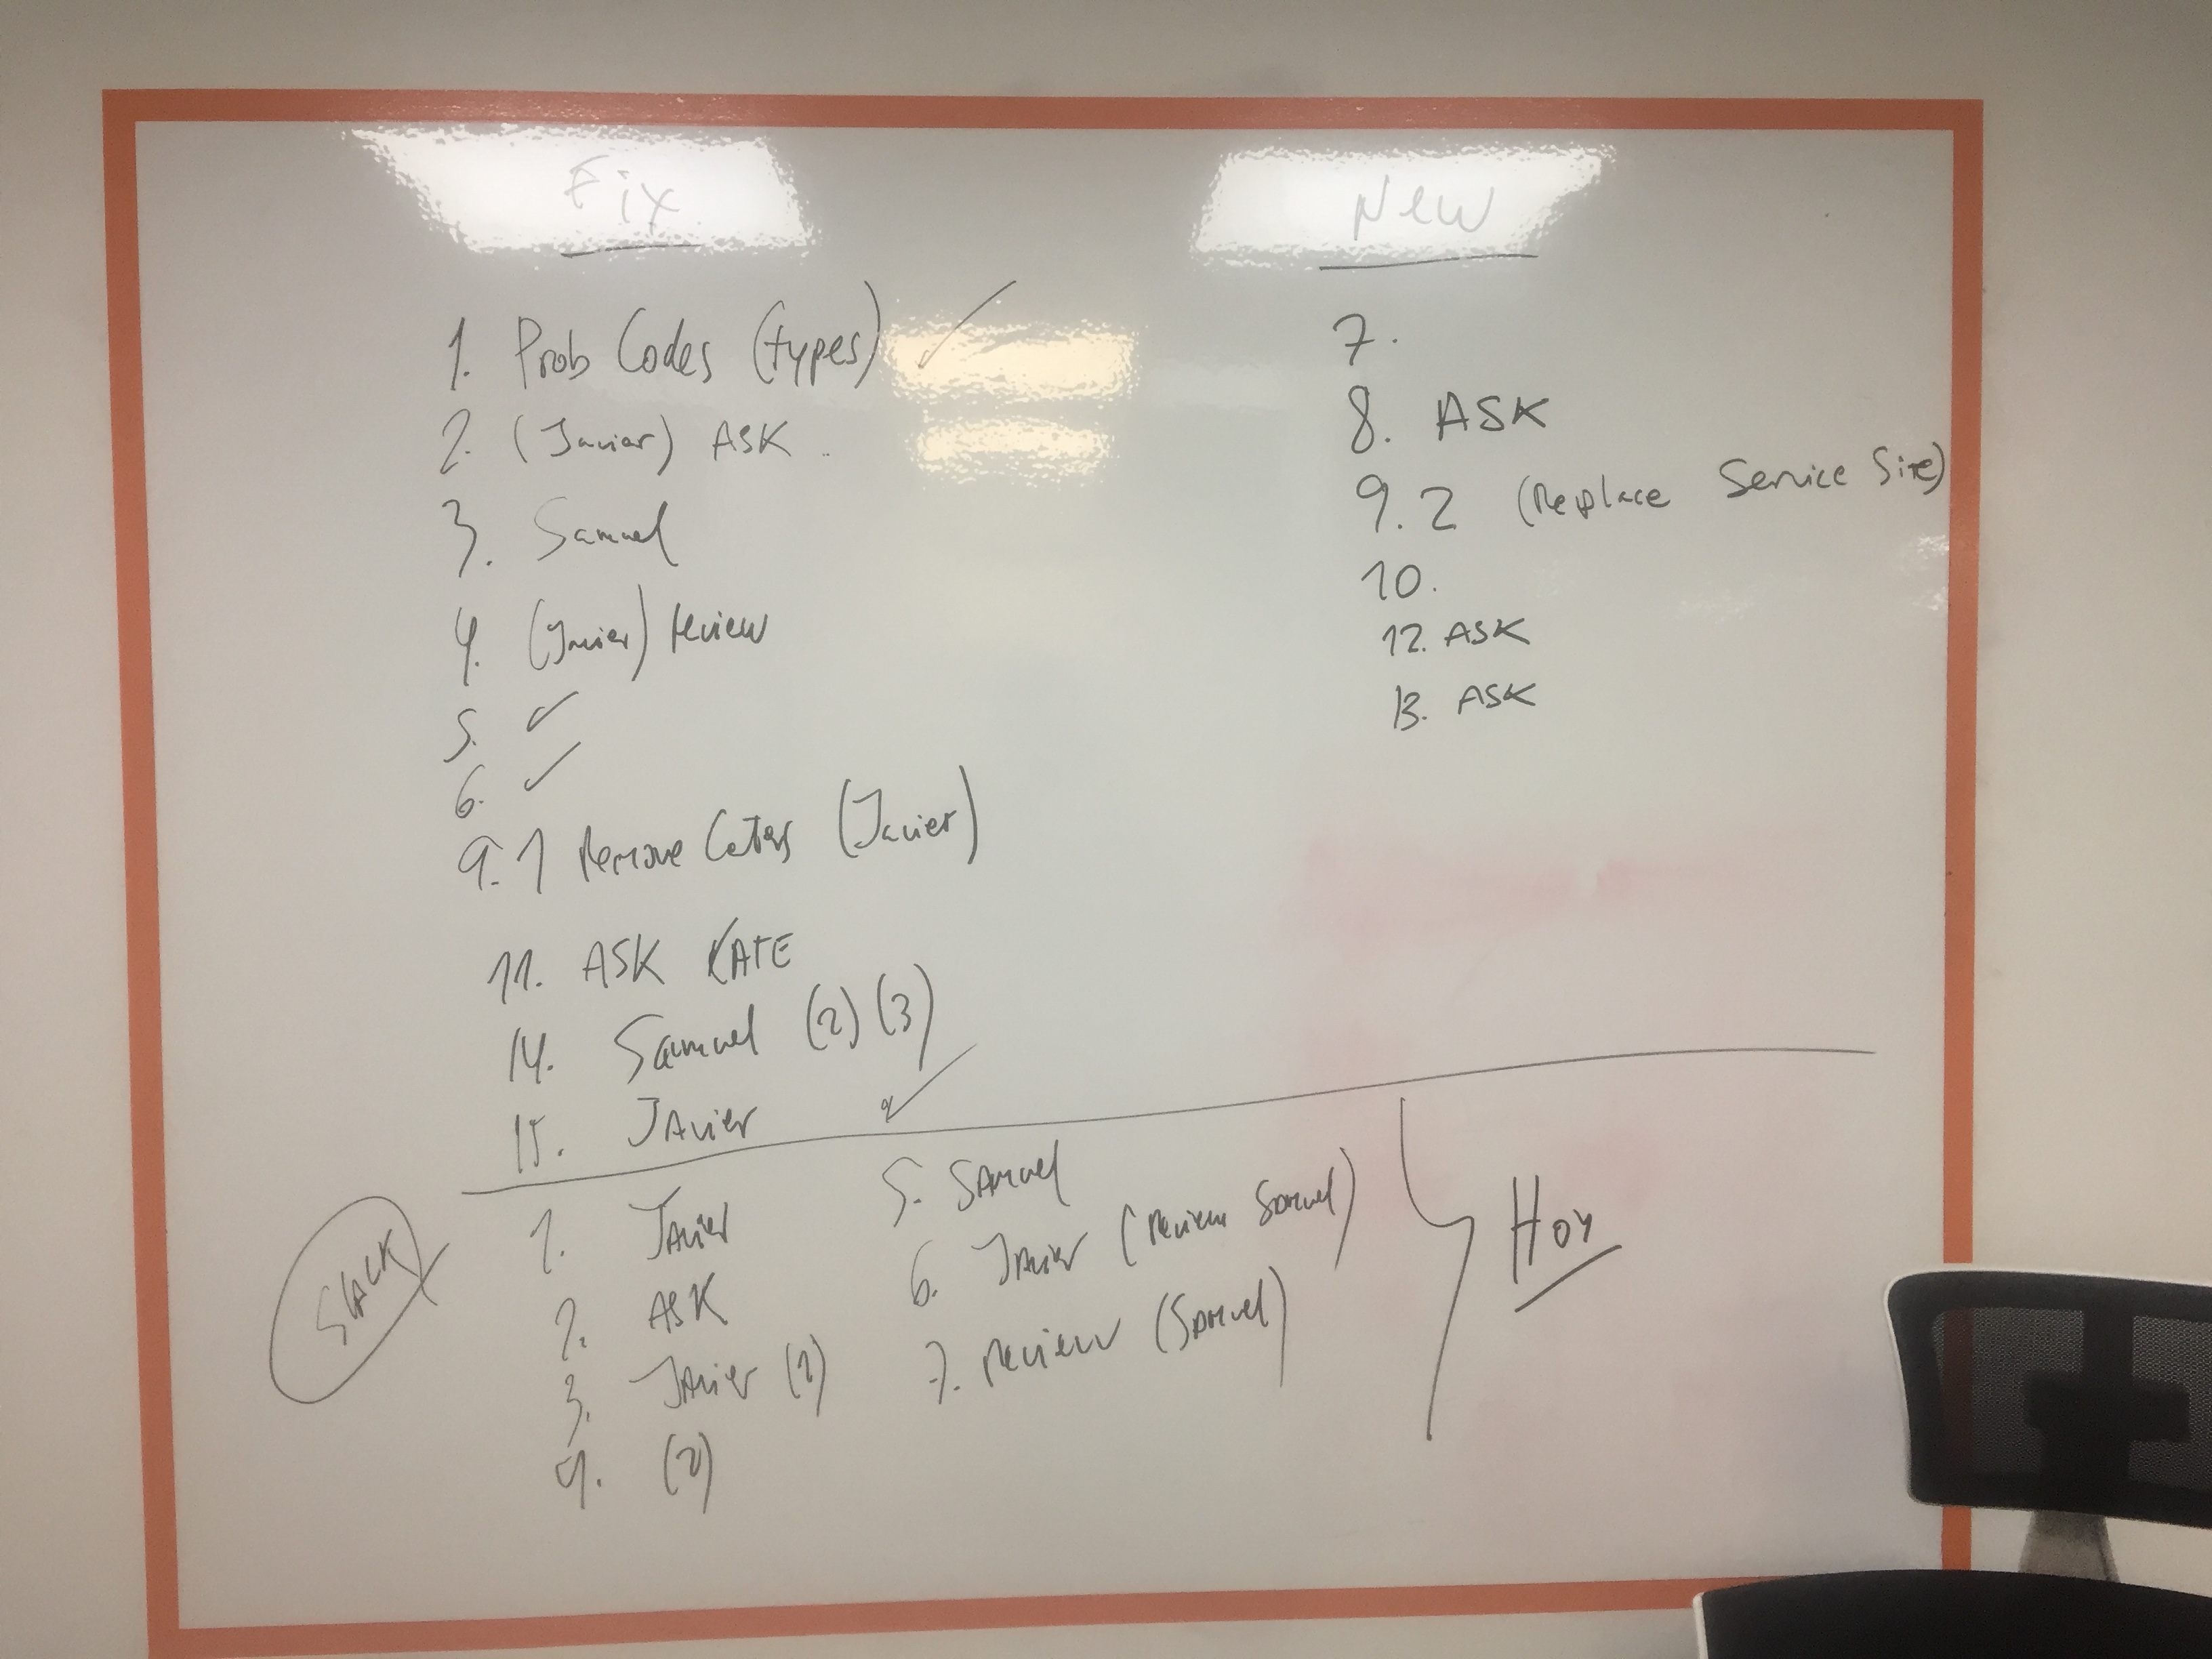 Fix
1. Prob Codes (types) ✓
2. (Javier) ASK
3. Samuel
4. (Javier) review
5. ✓
6. ✓
9.1 Remove (Javier)
11. ASK KATE
14. Samuel (2) (3)
15. Javier ✓
New
7.
8. ASK
9.2 (Replace Service Site)
10.
12. ASK
13. ASK
SLACK
1. Javier
2. ASK
3. Javier (2)
4. (2)
5. Samuel
6. Javier (review Samuel)
7. review (Samuel)
Hoy